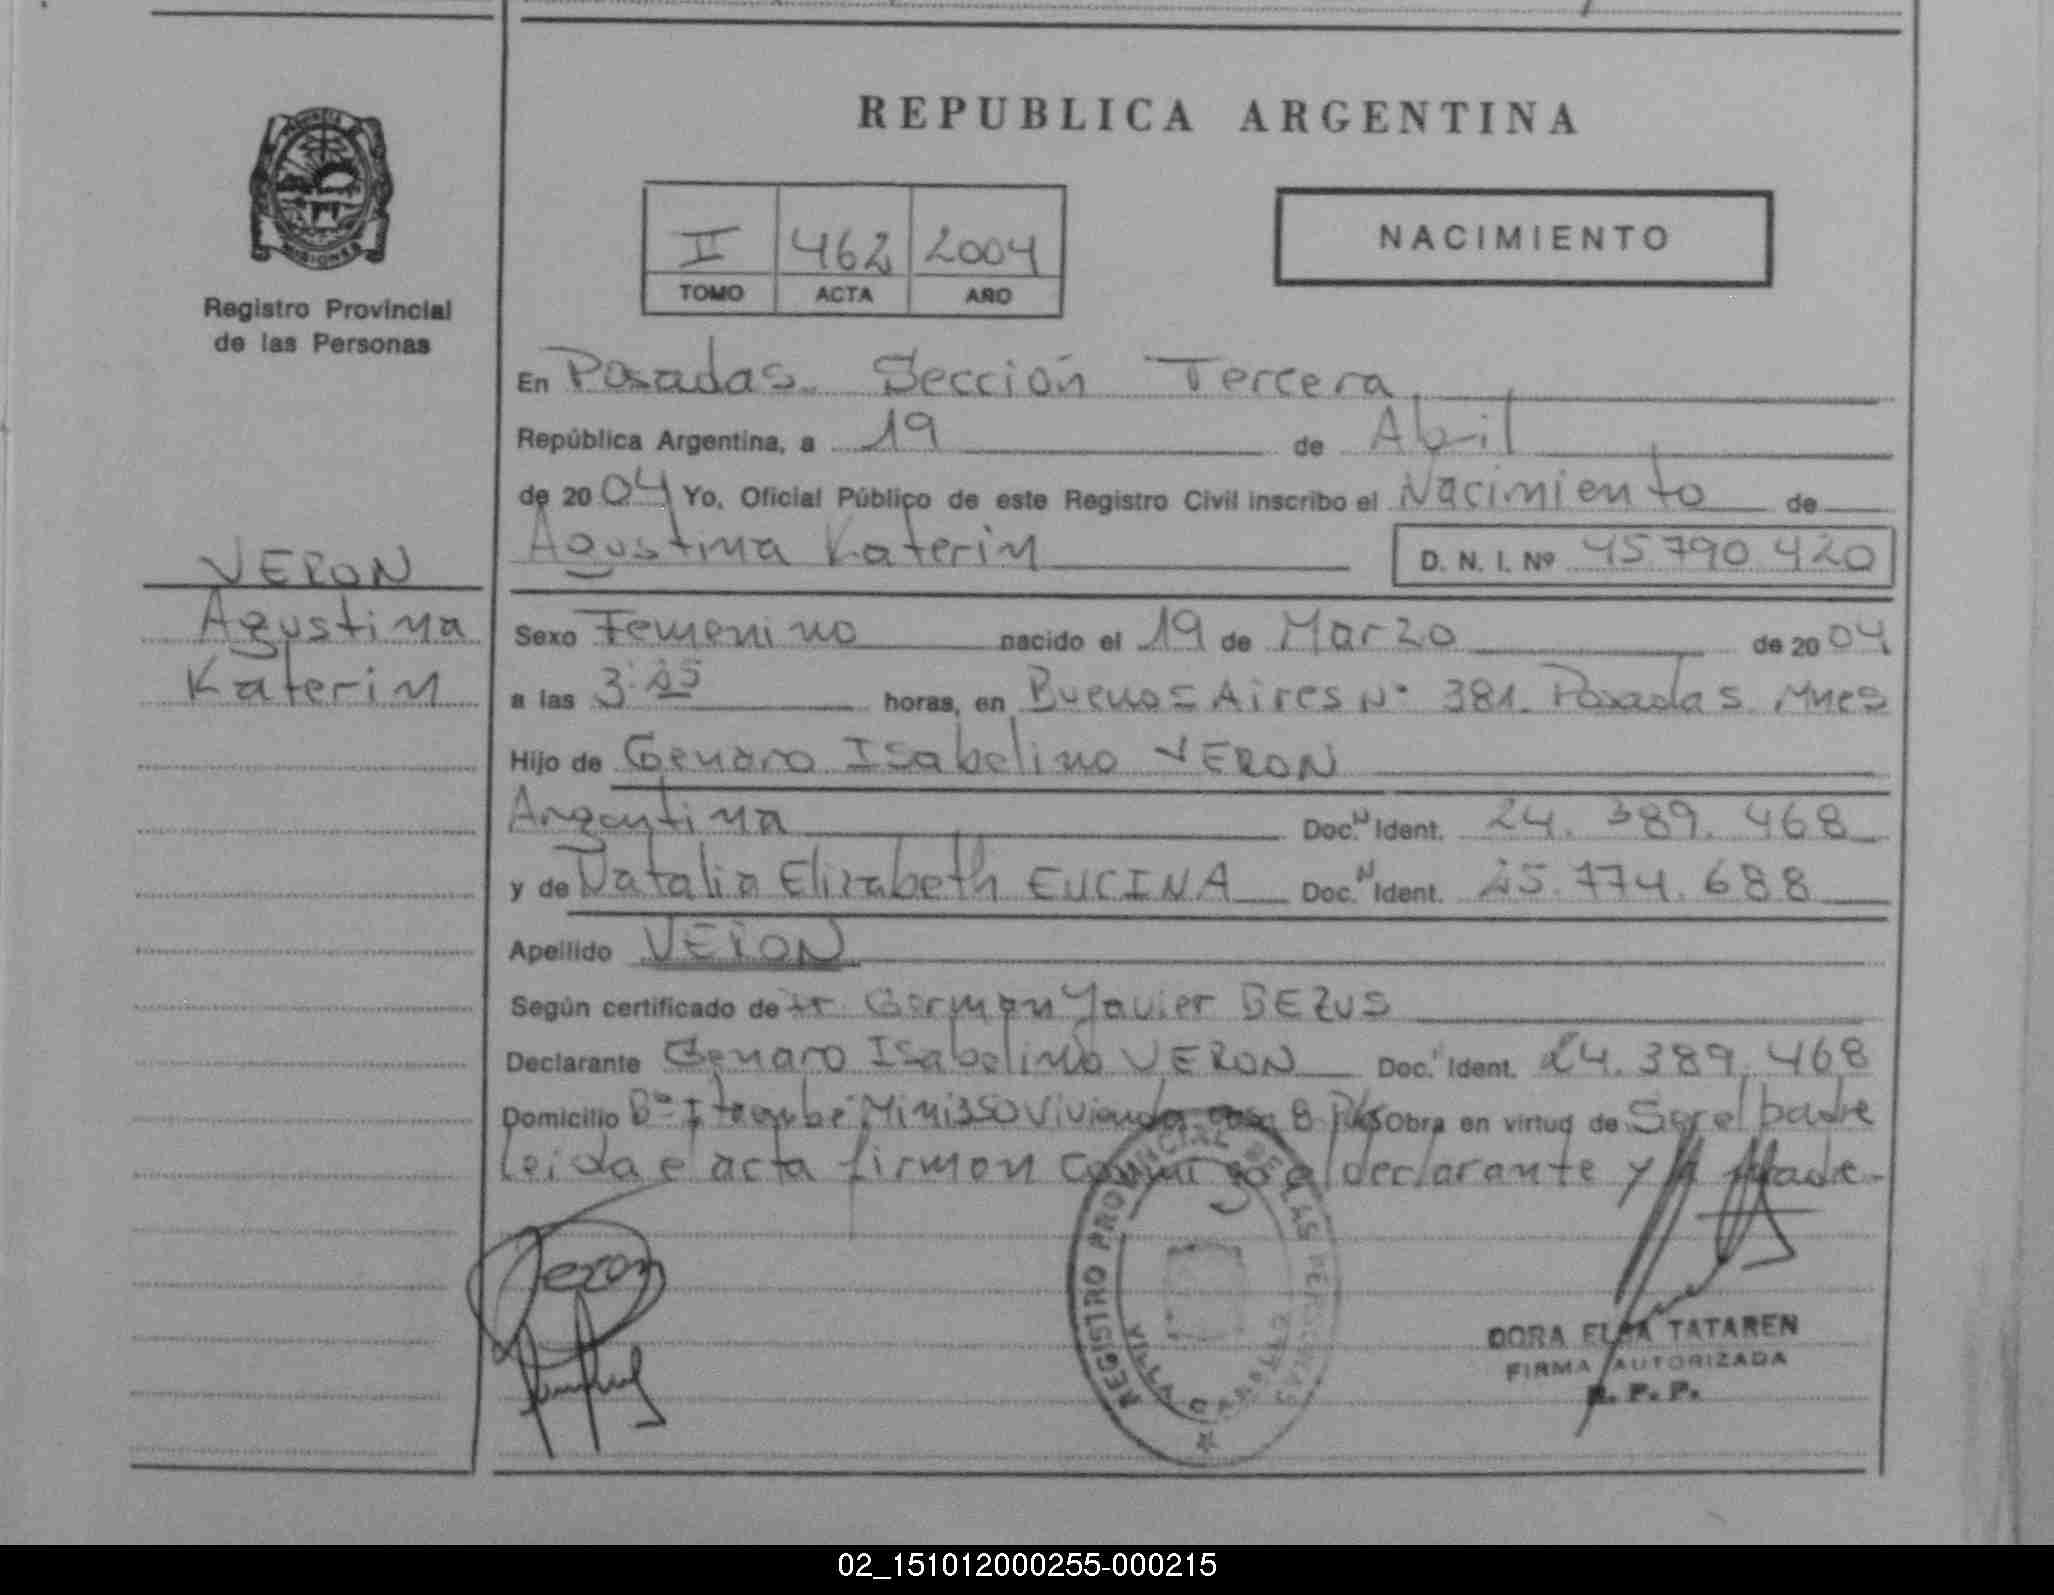 REPUBLICA ARGENTINA
PROVINCIA DE MISIONES
Registro Provincial
de las Personas
II 462 2004
TOMO ACTA AÑO
NACIMIENTO
En Posadas. Sección Tercera
República Argentina, a 19 de Abril
de 2004 Yo, Oficial Público de este Registro Civil inscribo el Nacimiento de
Agustina Katerin D. N. I. Nº 45.790.420
VERON
Agustina
Katerin
Sexo Femenino nacido el 19 de Marzo de 2004
a las 3:25 horas, en Buenos Aires Nº 381. Posadas. Mnes
Hijo de Genaro Isabelino VERON
Argentina Doc. N Ident. 24.389.468
y de Natalia Elizabeth ENCINA Doc. N Ident. 25.774.688
Apellido VERON
Según certificado de Dr. German Javier BEZUS
Declarante Genaro Isabelino VERON Doc. Ident. 24.389.468
Domicilio Bº Itaembé Mini 350 Viviendas casa 8 Obra en virtud de Ser el padre
Leida el acta firman conmigo el declarante y la Madre.
Veron
REGISTRO PROVINCIAL DE LAS PERSONAS
VILLA
DORA ELSA TATAREN
FIRMA AUTORIZADA
R. P. P.
02_151012000255-000215